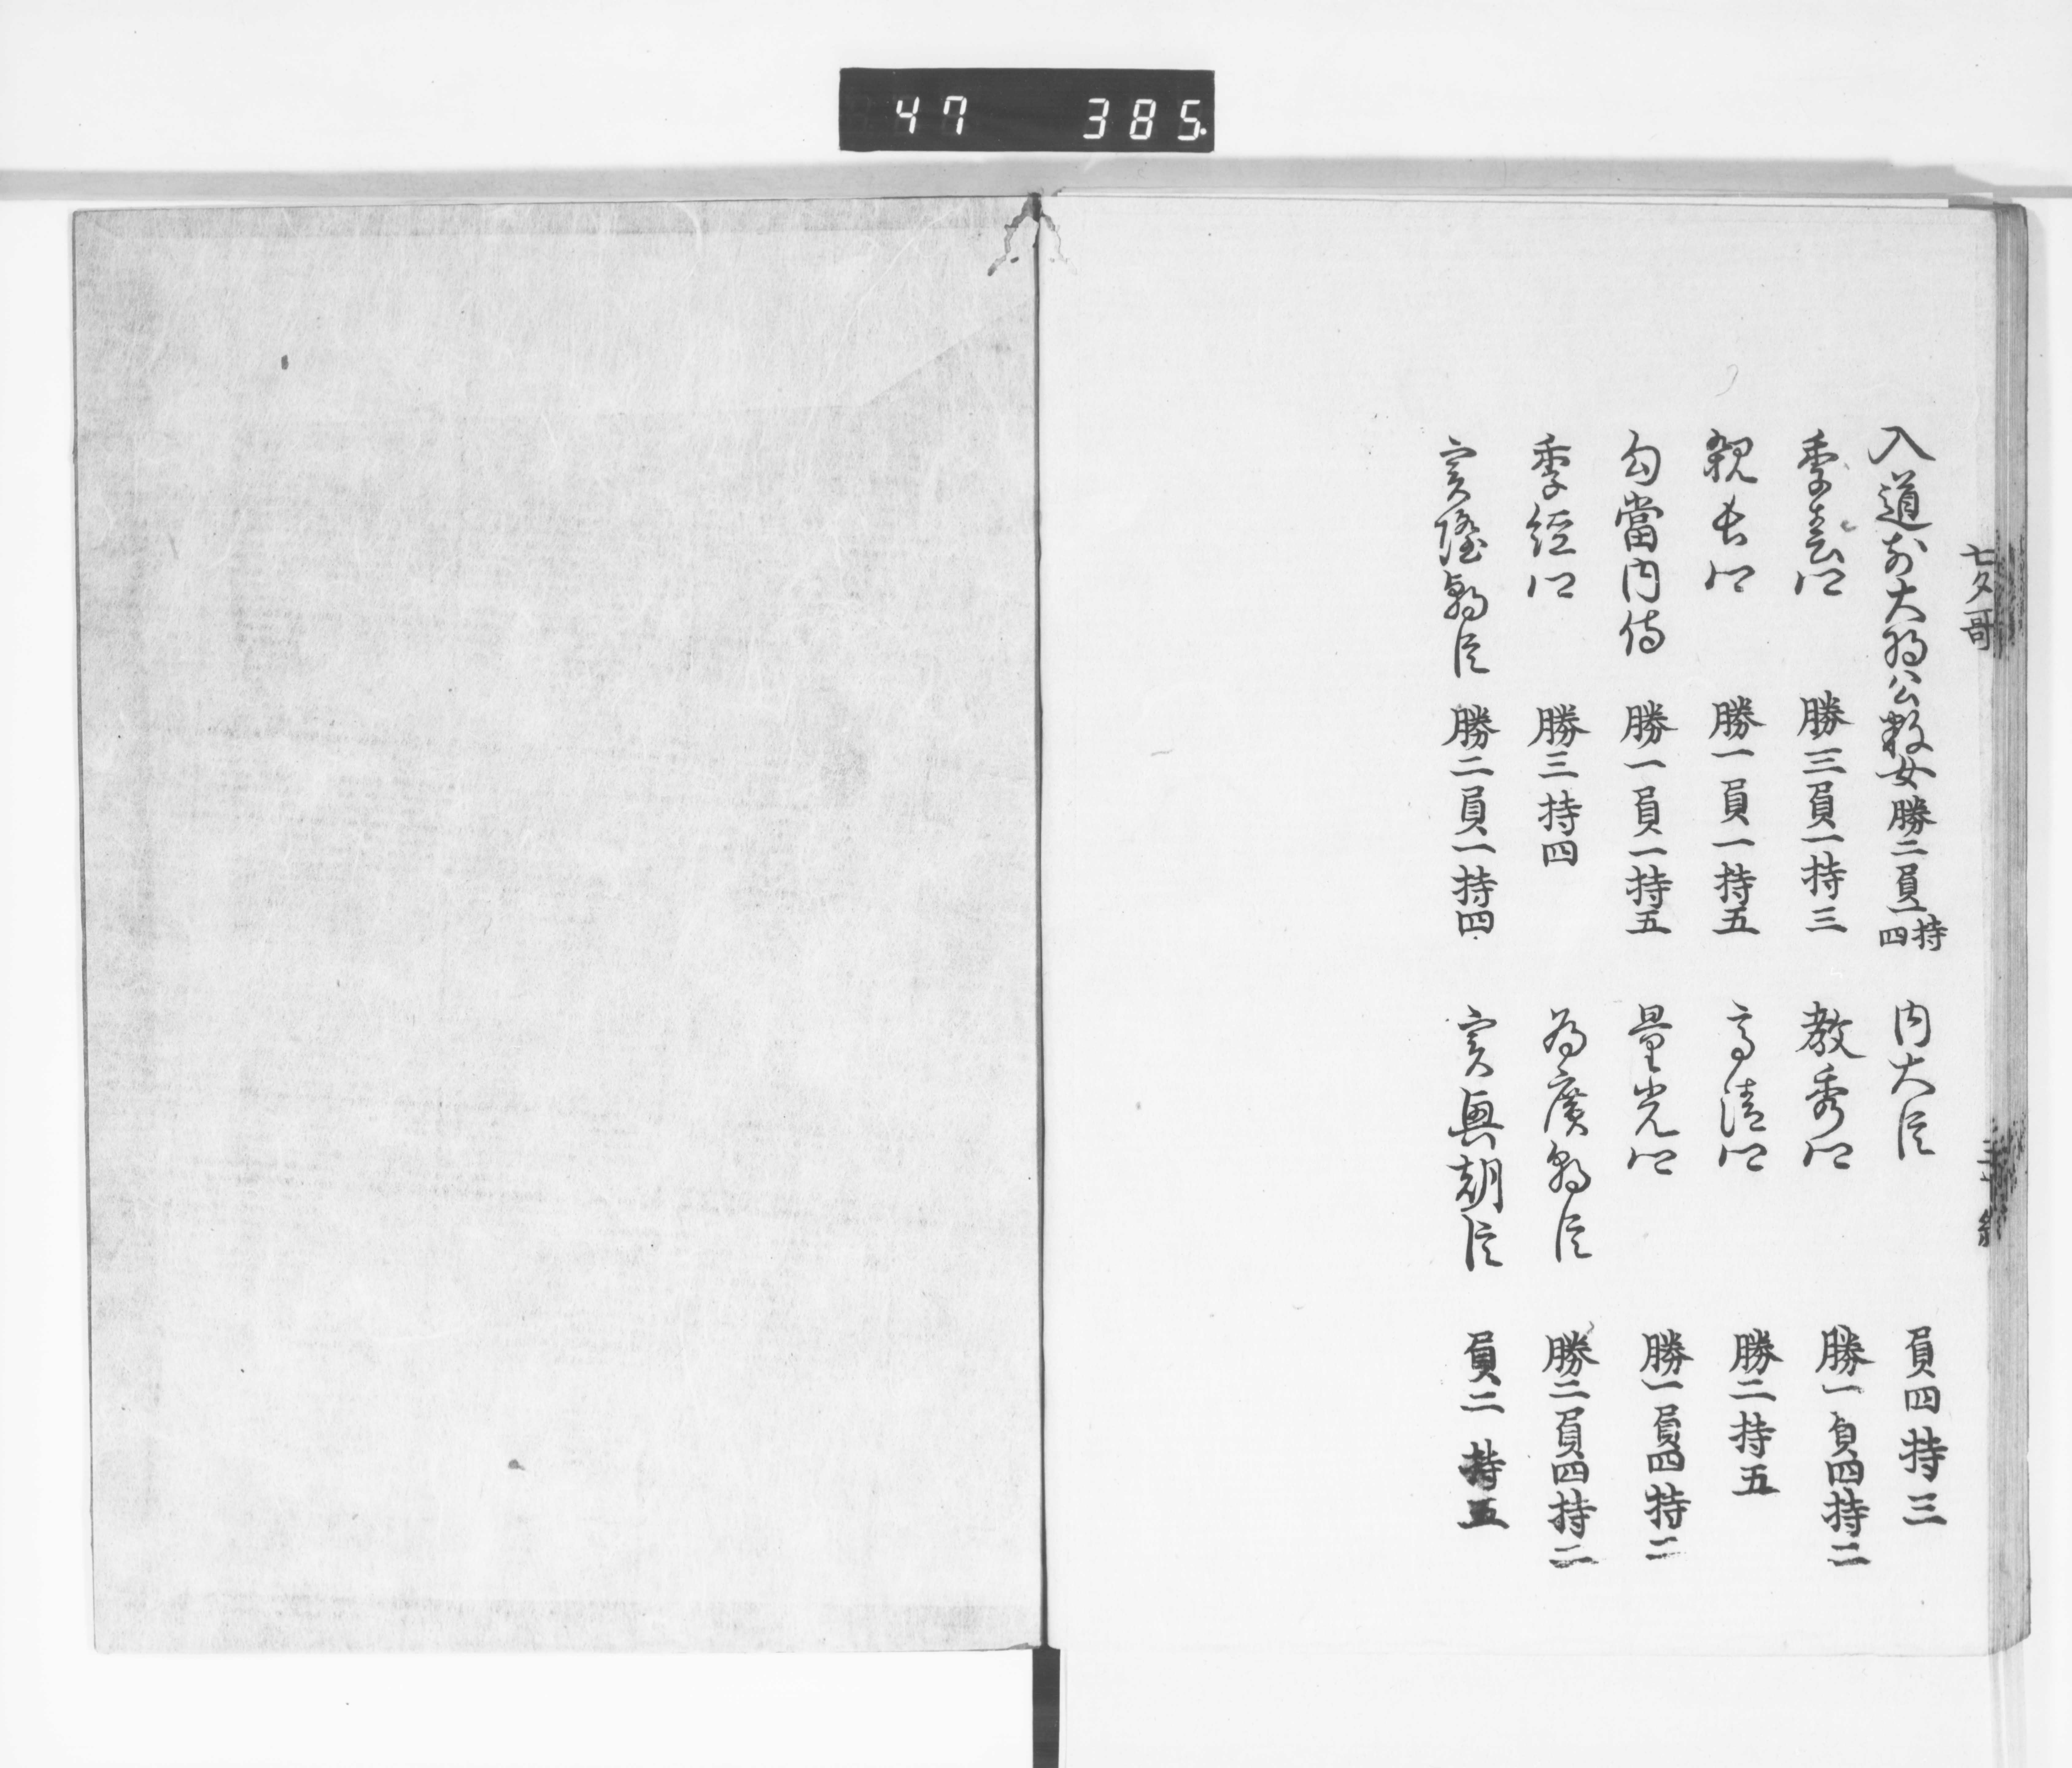 47 385
七夕哥
入道前大納公敦女 勝二員一持四 内大臣 員四持三
季春卿 勝三員一持三 教秀卿 勝一負四持二
親長卿 勝一員一持五 高清卿 勝二持五
勾當内侍 勝一員一持五 量光卿 勝一員四持二
季經卿 勝三持四 為廣朝臣 勝二員四持二
実隆朝臣 勝二員一持四 実興朝臣 員二持五